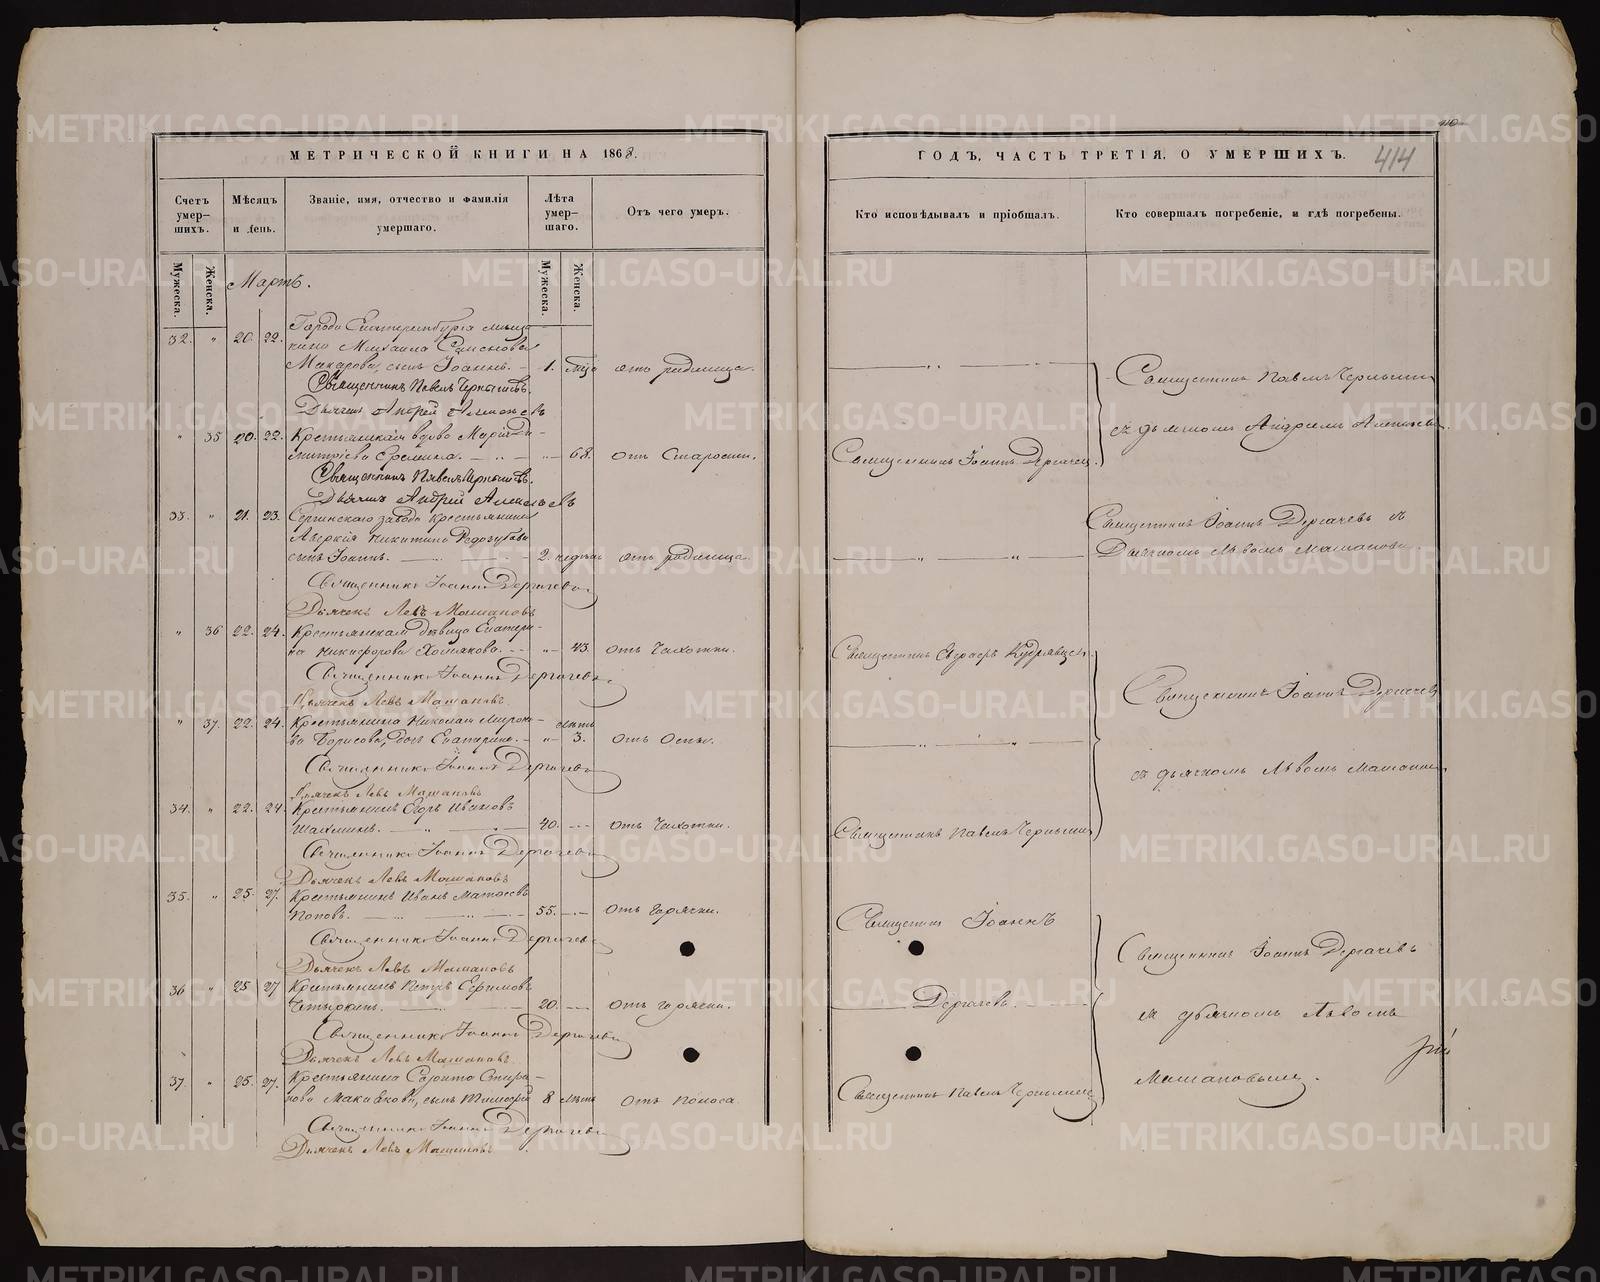 МЕТРИЧЕСКОЙ КНИГИ НА 1868.
Счетъ умер-
шихъ.
Мѣсяцъ
и день.
Званіе, имя, отчество и фамилія
умершаго.
Лѣта
умер-
шаго.
Отъ чего умеръ.
Мужеска.
Женска.
Мужеска.
Женска.
Мартъ.
Города Екатеринбурга мѣща-
32. " 20. 22.
нина Михаила Семенова
Макарова, сынъ Іоаннъ. 1. мца отъ родимца.
Священникъ Павелъ Чернышевъ.
Дьячекъ Андрей
" 35 20. 22. Крестьянская вдова Марія Ди-
митріева Еремина. 68. отъ Старости.
Священникъ Павелъ Чернышевъ.
Дьячекъ Андрей
33. " 21. 23. Сергинскаго завода крестьянина
Аверкія Никитина
сынъ Іоаннъ. 2. недѣль отъ родимца.
Священникъ Іоаннъ Дергачевъ
Дьячекъ Левъ Машановъ
" 36 22. 24. Крестьянская дѣвица Екатери-
на Никифорова Хомякова. 43. отъ Чахотки.
Священникъ Іоаннъ Дергачевъ
Дьячекъ Левъ Машановъ
" 37. 22. 24. Крестьянина Николая Миро-
ва Борисова, дочь Екатерина. лѣтъ 3. отъ Оспы.
Священникъ Іоаннъ Дергачевъ
Дьячекъ Левъ Машановъ
34. " 22. 24. Крестьянинъ Егоръ Ивановъ
40. отъ Чахотки.
Священникъ Іоаннъ Дергачевъ
Дьячекъ Левъ Машановъ
35. " 25. 27. Крестьянинъ Иванъ Матвеевъ
Поповъ. 55. отъ Горячки.
Священникъ Іоаннъ Дергачевъ
Дьячекъ Левъ Машановъ
36 " 25 27 Крестьянинъ Петръ Ефимовъ
Четыркинъ. 20. отъ Горячки.
Священникъ Іоаннъ Дергачевъ
Дьячекъ Левъ Машановъ
37. " 25. 27. Крестьянина
сынъ Тимофей 8 лѣтъ отъ Поноса
Священникъ Іоаннъ Дергачевъ
Дьячекъ Левъ Машановъ
ГОДЪ, ЧАСТЬ ТРЕТІЯ, О УМЕРШИХЪ.
414
Кто исповѣдывалъ и пріобщалъ.
Кто совершалъ погребеніе, и гдѣ погребены.
Священникъ Павелъ Чернышевъ
съ дьячкомъ Андреемъ
Священникъ Іоаннъ Дергачевъ.
Священникъ Іоаннъ Дергачевъ съ
Дьячкомъ Львомъ Машановымъ.
Священникъ Кудрявцевъ
Священникъ Іоаннъ Дергачевъ
съ дьячкомъ Львомъ Машановымъ
Священникъ Павелъ Чернышевъ
Священникъ Іоаннъ
Дергачевъ.
Священникъ Іоаннъ Дергачевъ
съ дьячкомъ Львомъ
Машановымъ.
Священникъ Павелъ Чернышевъ
METRIKI.GASO-URAL.RU